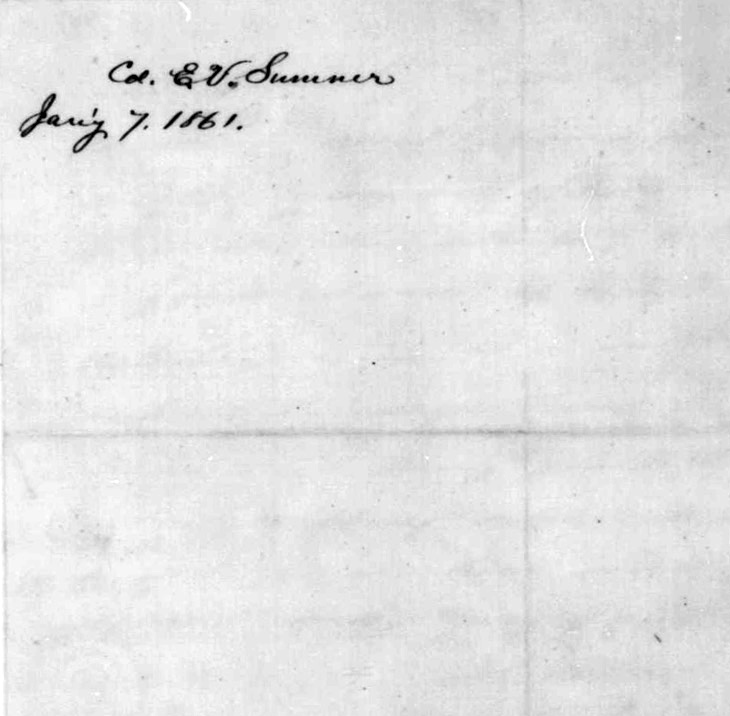 Col. E. V. Sumner
Jan'y 7. 1861.